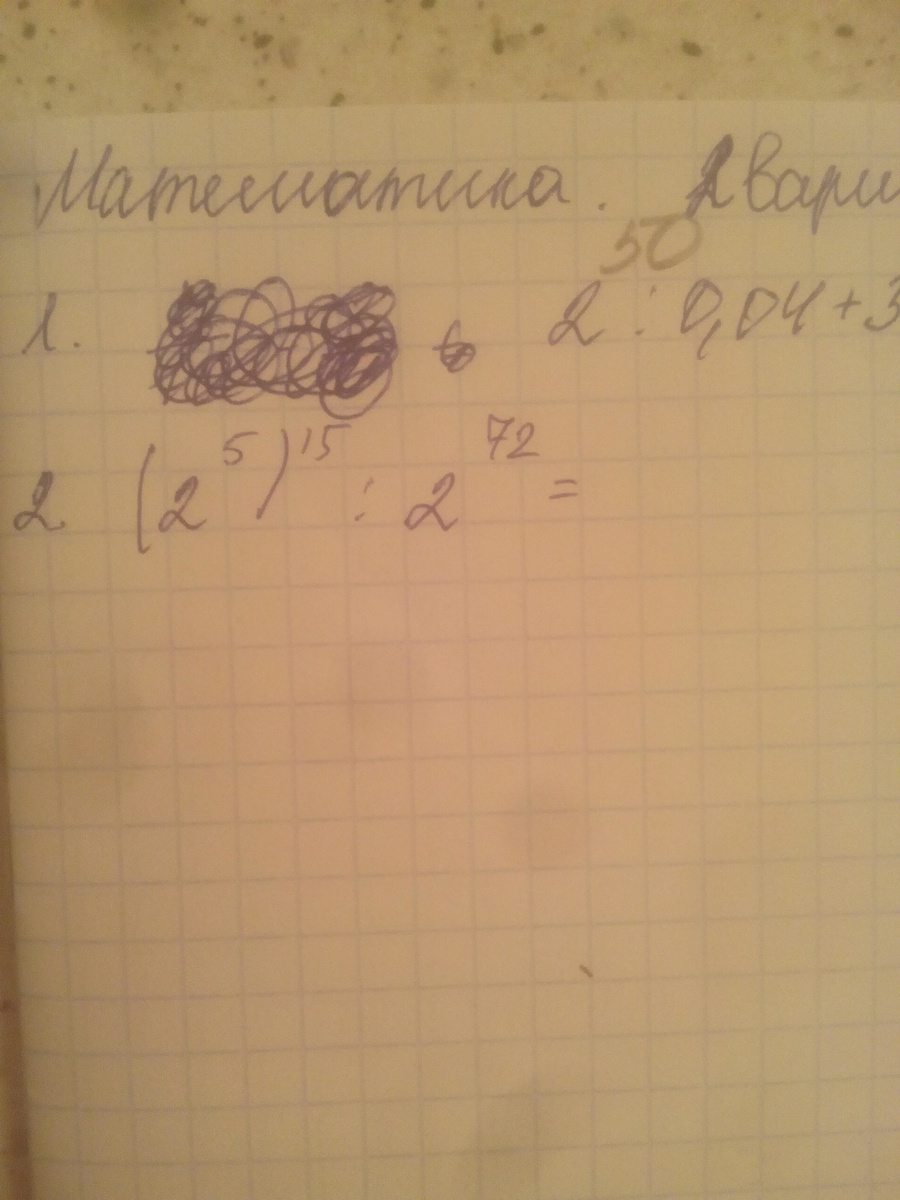 Математика. 2 вари
50
1. 2 : 0,04 + 3
2. (2^5)^15 : 2^72 =